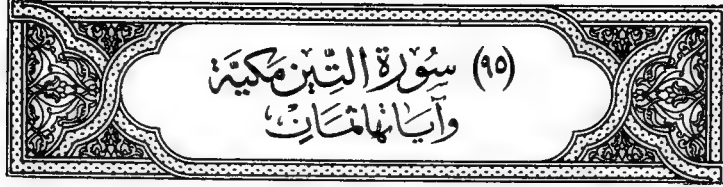 (٩٥) سُورَةُ التِّينِ مَكِيَّة
وَآيَاتُهَا ثَمَانِ